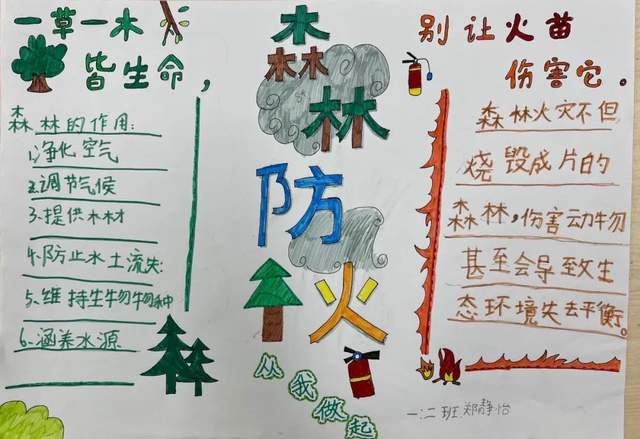 一草一木
皆生命，
森林的作用:
1.净化空气
2.调节气候
3.提供木材
4.防止水土流失.
5.维持生物物种
6.涵养水源
森
林
防
火
从我做起
别让火苗
伤害它。
森林火灾不但
烧毁成片的
森林，伤害动物
甚至会导致生
态环境失去平衡。
一.二班.郑静怡